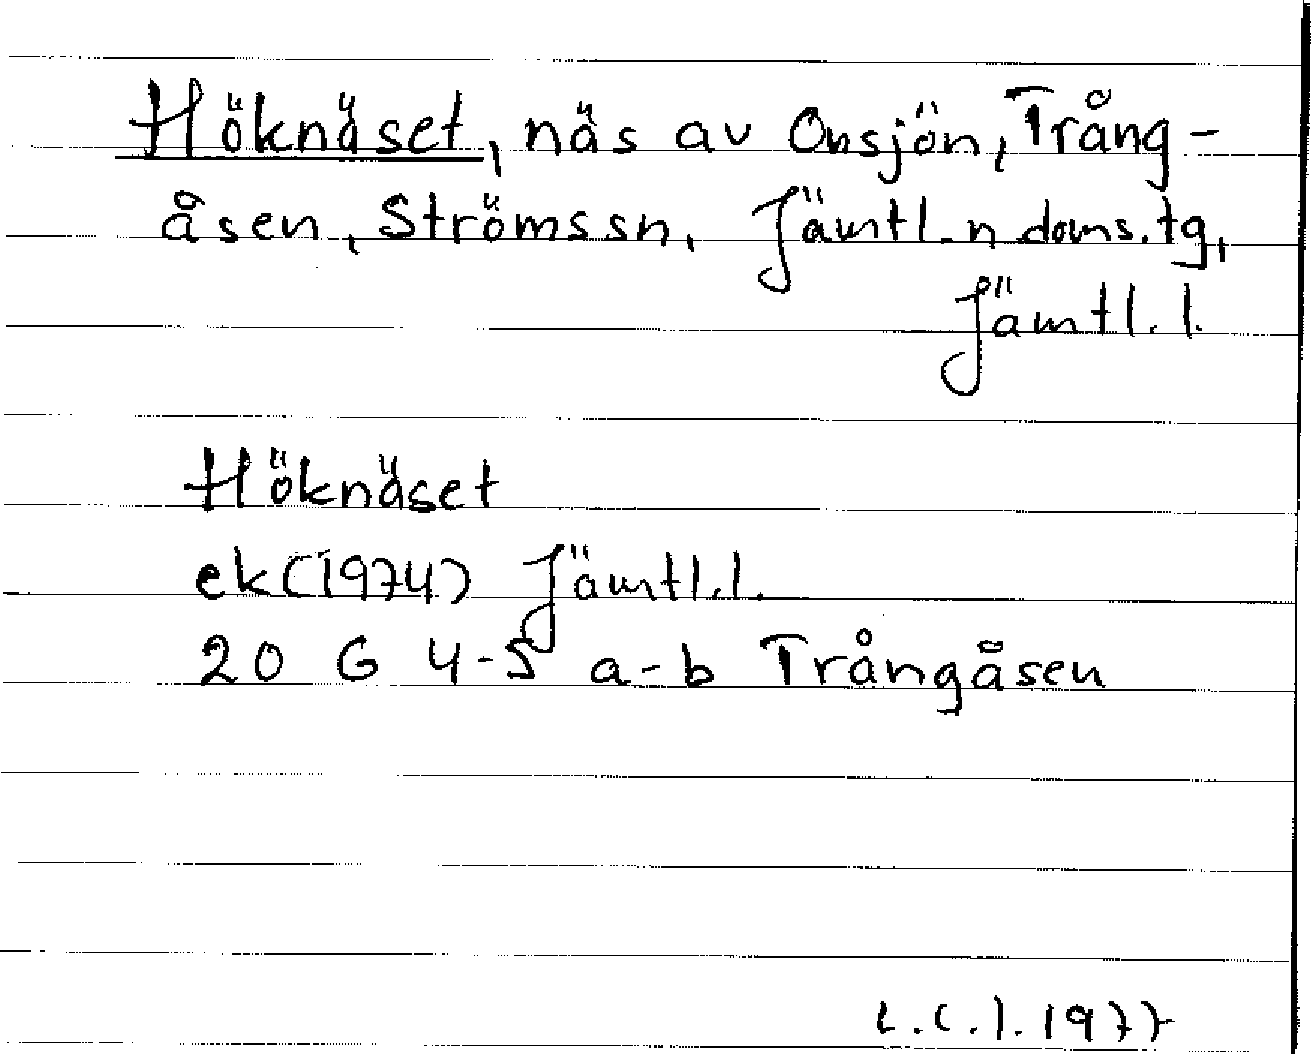 Höknäset, näs av Onsjön, Trång-
åsen, Strömssn, Jämtl. n doms. tg,
Jämtl. l.
Höknäset
ek (1974) Jämtl. l.
20 G 4-5 a-b Trångåsen
L.C.J. 1977